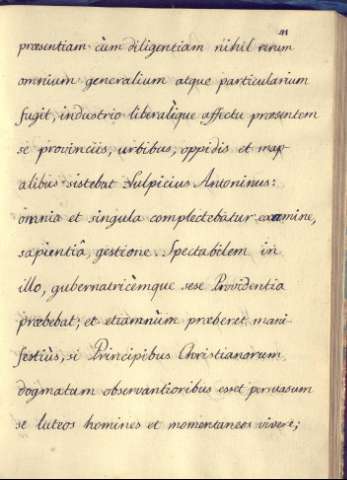 præsentiam cùm diligentiam nihil rerum
omnium generalium atque particularium
fugit, industrio liberalique affectu præsentem
se provinciis, urbibus, oppidis et map-
alibus sistebat Sulpicius Antoninus:
omnia et singula complectebatur examine,
sapientiâ, gestione. Spectabilem in
illo, gubernatricèmque sese Providentia
præbebat; et etiamnùm præberet mani-
festiùs, si Principibus Christianorum
dogmatum observantioribus esset persuasum
se luteos homines et momentaneos vivere;